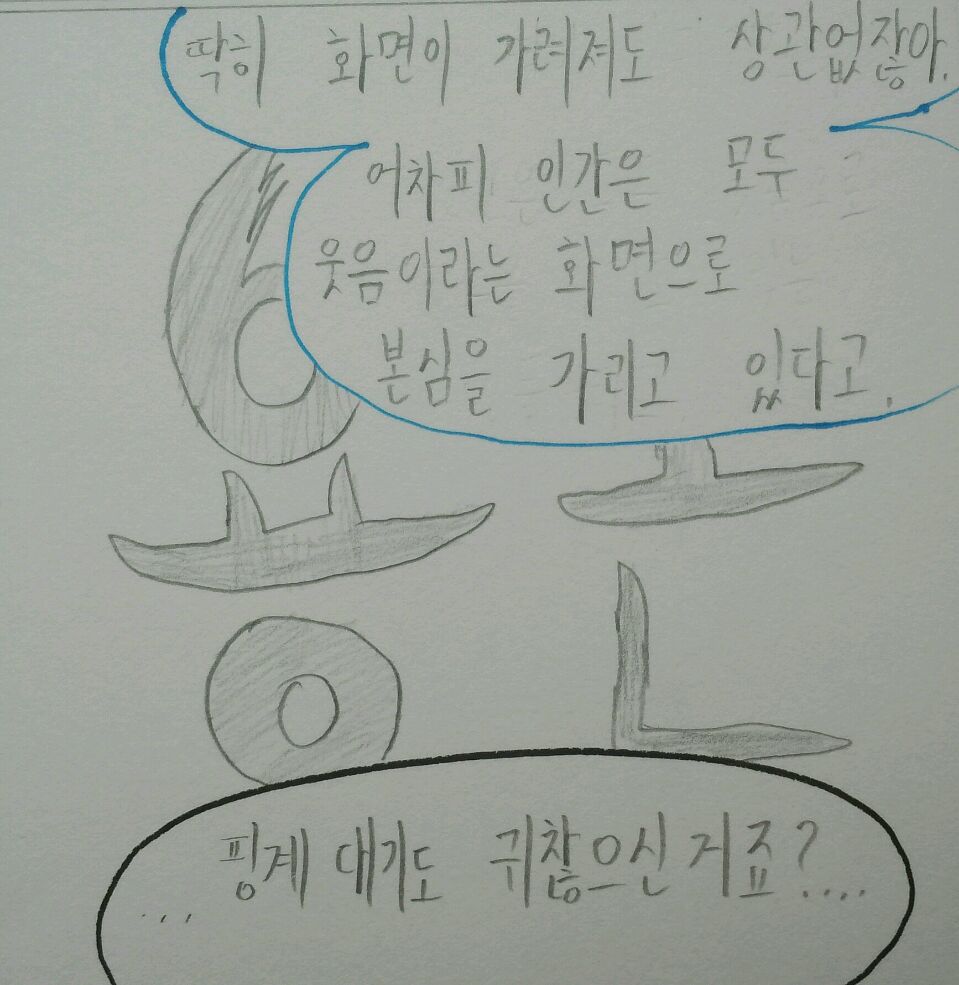 딱히 화면이 가려져도 상관없잖아.
어차피 인간은 모두
웃음이라는 화면으로
본심을 가리고 있다고.
용
... 핑계 대기도 귀찮으신 거죠?....